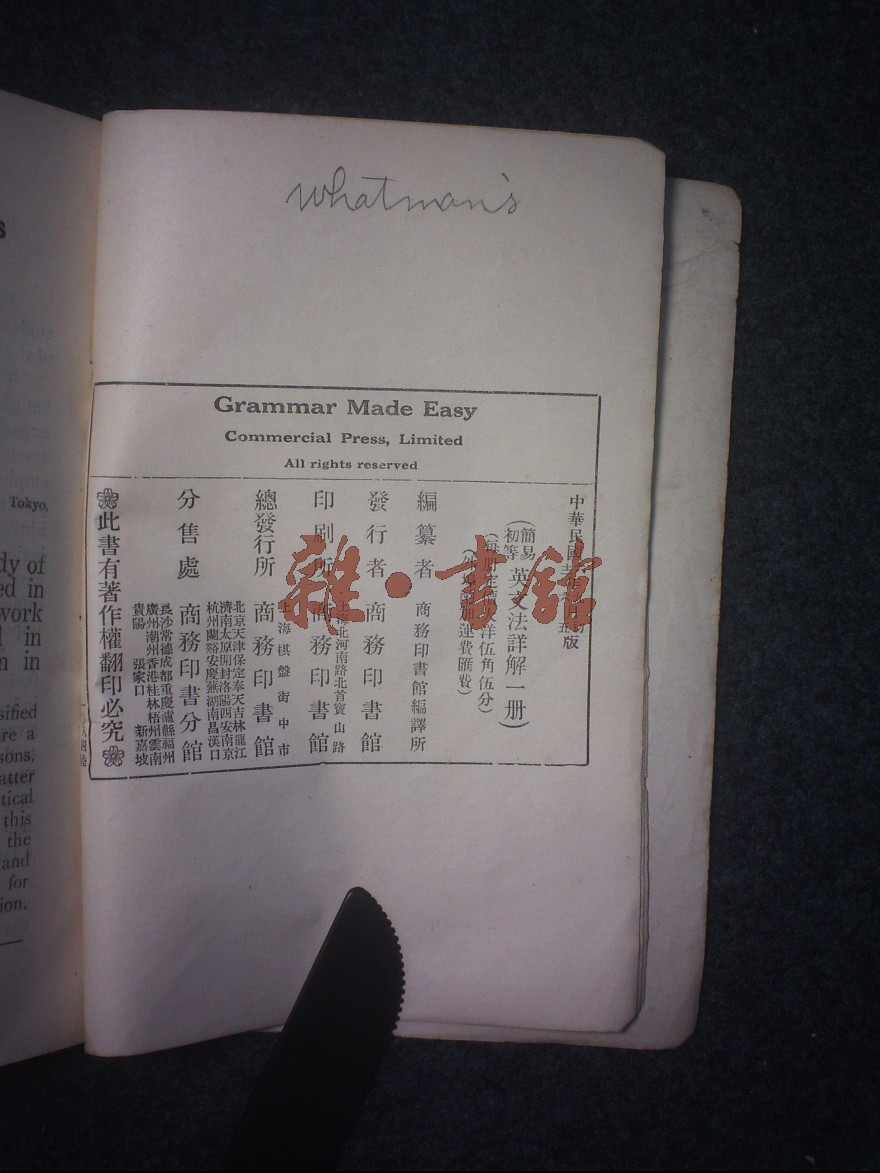 whatman's
Grammar Made Easy
Commercial Press, Limited
All rights reserved
中華民國
版
簡易
初等
英文法詳解一册
(每册定價大洋伍角伍分)
運費匯費)
編纂者 商務印書館編譯所
發行者 商務印書館
印刷所
上海北河南路北首寶山路
商務印書館
總發行所
上海棋盤街中市
商務印書館
分售處
北京天津保定奉天吉林龍江
濟南太原開封洛陽西安南京
杭州蘭谿安慶蕪湖南昌漢口
商務印書分館
長沙常德成都重慶瀘縣福州
廣州潮州香港桂林梧州雲南
貴陽 張家口 新嘉坡
此書有著作權翻印必究
雜·書館
s
Tokyo,
dy of
ed in
work
d in
n in
sified
re a
sons,
atter
tical
this
the
and
for
ion.